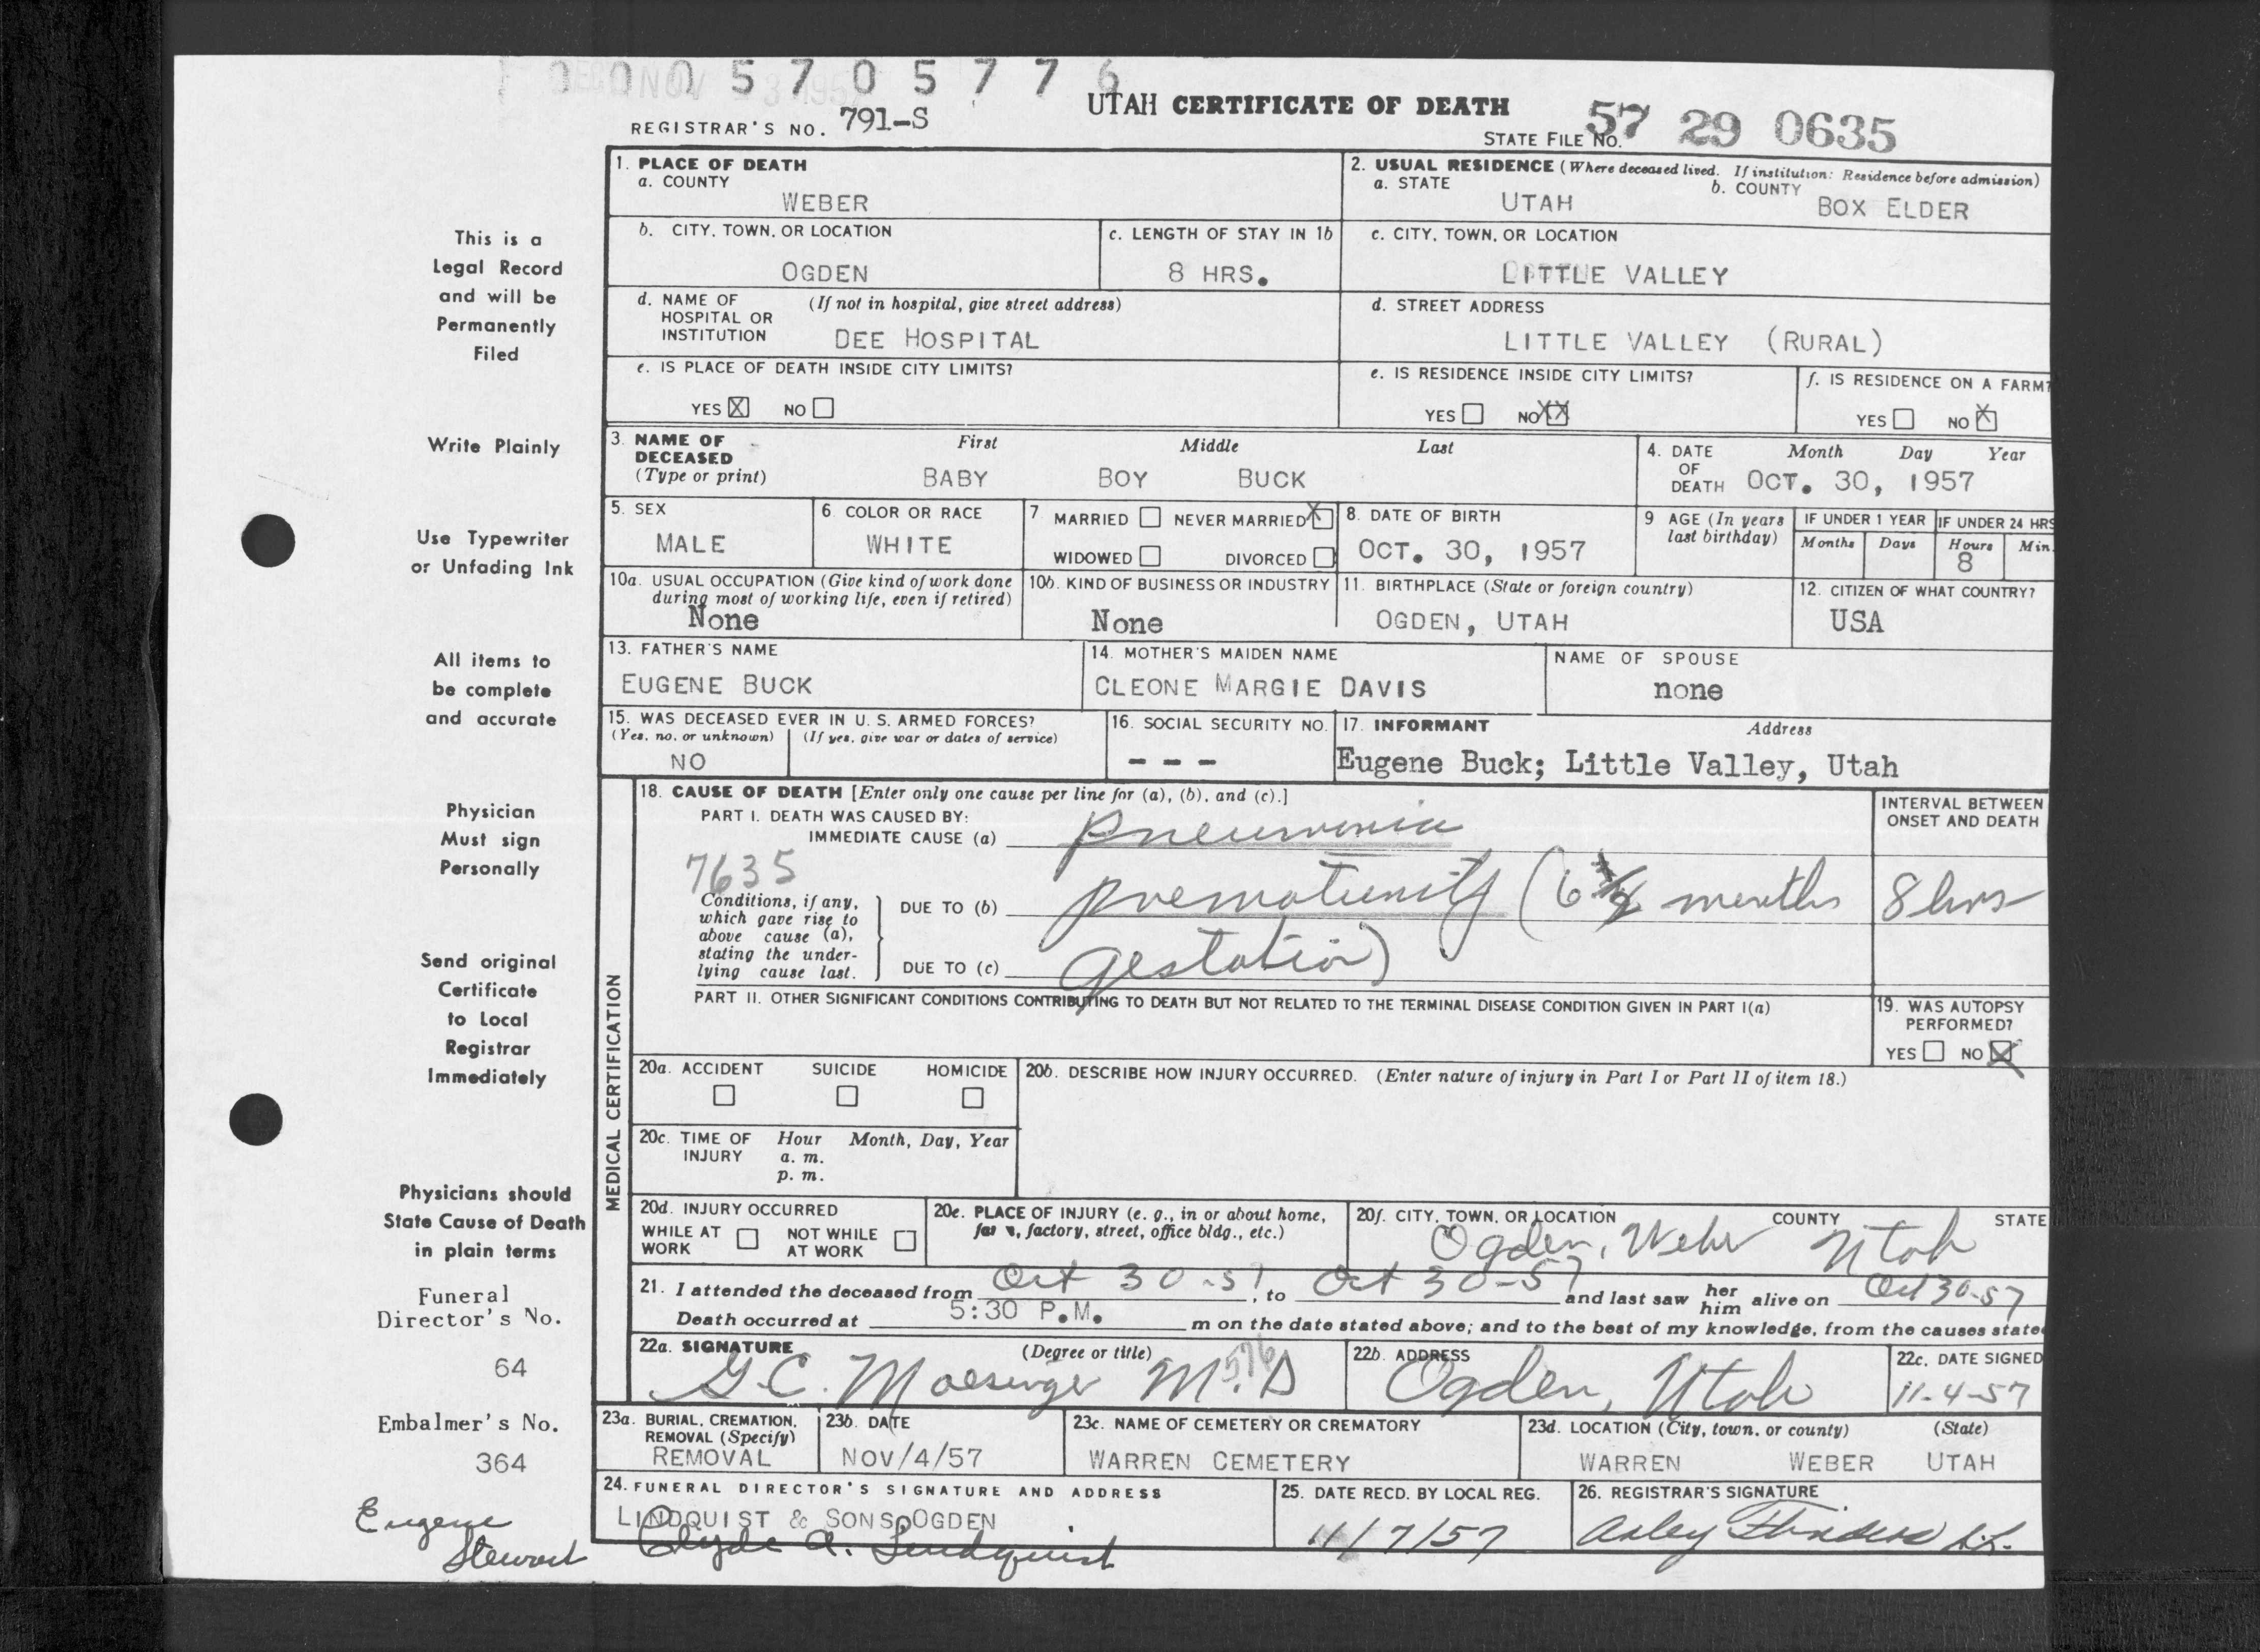 0 0 0 5 7 0 5 7 7 6
UTAH CERTIFICATE OF DEATH
REGISTRAR'S NO. 791-S
STATE FILE NO. 57 29 0635
1. PLACE OF DEATH
a. COUNTY
WEBER
2. USUAL RESIDENCE (Where deceased lived. If institution: Residence before admission)
a. STATE
UTAH
b. COUNTY
BOX ELDER
b. CITY, TOWN, OR LOCATION
OGDEN
c. LENGTH OF STAY IN 1b
8 HRS.
c. CITY, TOWN, OR LOCATION
LITTLE VALLEY
d. NAME OF HOSPITAL OR INSTITUTION
(If not in hospital, give street address)
DEE HOSPITAL
d. STREET ADDRESS
LITTLE VALLEY (RURAL)
e. IS PLACE OF DEATH INSIDE CITY LIMITS?
YES X NO
e. IS RESIDENCE INSIDE CITY LIMITS?
YES NO XX
f. IS RESIDENCE ON A FARM?
YES NO X
3. NAME OF DECEASED
(Type or print)
First Middle Last
BABY BOY BUCK
4. DATE OF DEATH
Month Day Year
OCT. 30, 1957
5. SEX
MALE
6. COLOR OR RACE
WHITE
7 MARRIED NEVER MARRIED X
WIDOWED DIVORCED
8. DATE OF BIRTH
OCT. 30, 1957
9 AGE (In years last birthday)
IF UNDER 1 YEAR
Months Days
IF UNDER 24 HRS
Hours Min.
8
10a. USUAL OCCUPATION (Give kind of work done during most of working life, even if retired)
None
10b. KIND OF BUSINESS OR INDUSTRY
None
11. BIRTHPLACE (State or foreign country)
OGDEN, UTAH
12. CITIZEN OF WHAT COUNTRY?
USA
13. FATHER'S NAME
EUGENE BUCK
14. MOTHER'S MAIDEN NAME
CLEONE MARGIE DAVIS
NAME OF SPOUSE
none
15. WAS DECEASED EVER IN U. S. ARMED FORCES?
(Yes, no, or unknown) (If yes, give war or dates of service)
NO
16. SOCIAL SECURITY NO.
- - -
17. INFORMANT Address
Eugene Buck; Little Valley, Utah
MEDICAL CERTIFICATION
18. CAUSE OF DEATH [Enter only one cause per line for (a), (b), and (c).]
PART I. DEATH WAS CAUSED BY:
IMMEDIATE CAUSE (a) pneumonia
7635
Conditions, if any, which gave rise to above cause (a), stating the underlying cause last.
DUE TO (b) prematurity (6 1/2 months
DUE TO (c) gestation)
INTERVAL BETWEEN ONSET AND DEATH
8 hrs
PART II. OTHER SIGNIFICANT CONDITIONS CONTRIBUTING TO DEATH BUT NOT RELATED TO THE TERMINAL DISEASE CONDITION GIVEN IN PART I(a)
19. WAS AUTOPSY PERFORMED?
YES NO X
20a. ACCIDENT SUICIDE HOMICIDE
20b. DESCRIBE HOW INJURY OCCURRED. (Enter nature of injury in Part I or Part II of item 18.)
20c. TIME OF INJURY
Hour Month, Day, Year
a. m.
p. m.
20d. INJURY OCCURRED
WHILE AT WORK NOT WHILE AT WORK
20e. PLACE OF INJURY (e. g., in or about home, factory, street, office bldg., etc.)
20f. CITY, TOWN, OR LOCATION COUNTY STATE
Ogden, Weber Utah
21. I attended the deceased from Oct 30-57, to Oct 30-57 and last saw her him alive on Oct 30-57
Death occurred at 5:30 P.M. m on the date stated above; and to the best of my knowledge, from the causes stated
22a. SIGNATURE (Degree or title)
G.C. Moesinger M.D
576
22b. ADDRESS
Ogden, Utah
22c. DATE SIGNED
11-4-57
23a. BURIAL, CREMATION, REMOVAL (Specify)
REMOVAL
23b. DATE
NOV/4/57
23c. NAME OF CEMETERY OR CREMATORY
WARREN CEMETERY
23d. LOCATION (City, town, or county) (State)
WARREN WEBER UTAH
24. FUNERAL DIRECTOR'S SIGNATURE AND ADDRESS
LINDQUIST & SONS OGDEN
Clyde A. Lindquist
25. DATE RECD. BY LOCAL REG.
11/7/57
26. REGISTRAR'S SIGNATURE
This is a
Legal Record
and will be
Permanently
Filed
Write Plainly
Use Typewriter
or Unfading Ink
All items to
be complete
and accurate
Physician
Must sign
Personally
Send original
Certificate
to Local
Registrar
Immediately
Physicians should
State Cause of Death
in plain terms
Funeral
Director's No.
64
Embalmer's No.
364
Eugene
Stewart